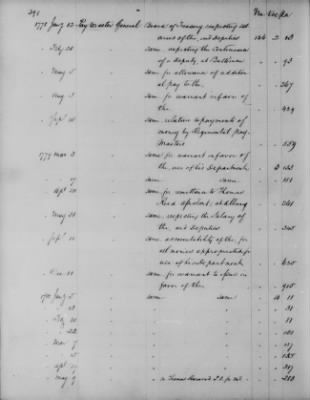 291
Vol Page
1778 Jany 12 Pay Master General Board of Treasury respecting set
ment of the, and Deputies 136 2 13
" Feby 28 same, respecting the Continuance
of a deputy, at Baltimore " " 93
" May 5 same for allowance of addition
al pay to the, " " 267
" Aug 3 same for warrant in favor of
the " " 429
" Sepr same relative to payments of
money by Regimental Pay-
Masters " " 559
1779 Mar 3 same for warrant in favor of
the, use of his Department " 3 133
" " same same " " 151
" Apl 20 same for remittance to Thomas
Reed Assistant, at Albany " " 241
" May 28 same, respecting the Salary of
the, and Deputies " " 345
" Sepr 11 same accountability of the, for
all monies appropriated for
use of his department " " 635
" Dec 11 same for warrant to issue in
favor of the " " 915
1780 Jany 5 same same " 4 11
" " " " 31
" Feby 10 " " 11
" " 22 " " 101
" Mar 7 " " 117
" " " " 155
" Apl " " 317
" May 9 " " 218